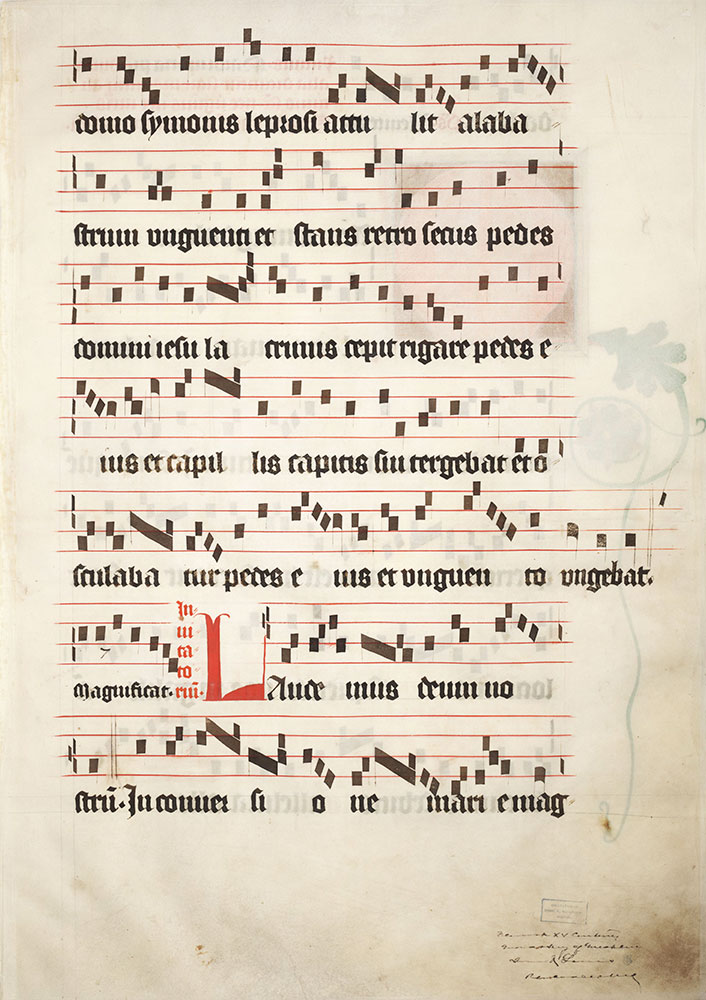 domo symonis leprosi attu lit alaba
strum vnguenti et stans retro secus pedes
domini iesu la crimis cepit rigare pedes e
ius et capil lis capitis sui tergebat et o
sculaba tur pedes e ius et vnguen to vngebat.
Magnificat. In ui ta to riū. LAude mus deum no
strū. In conuer si o ne mari e mag